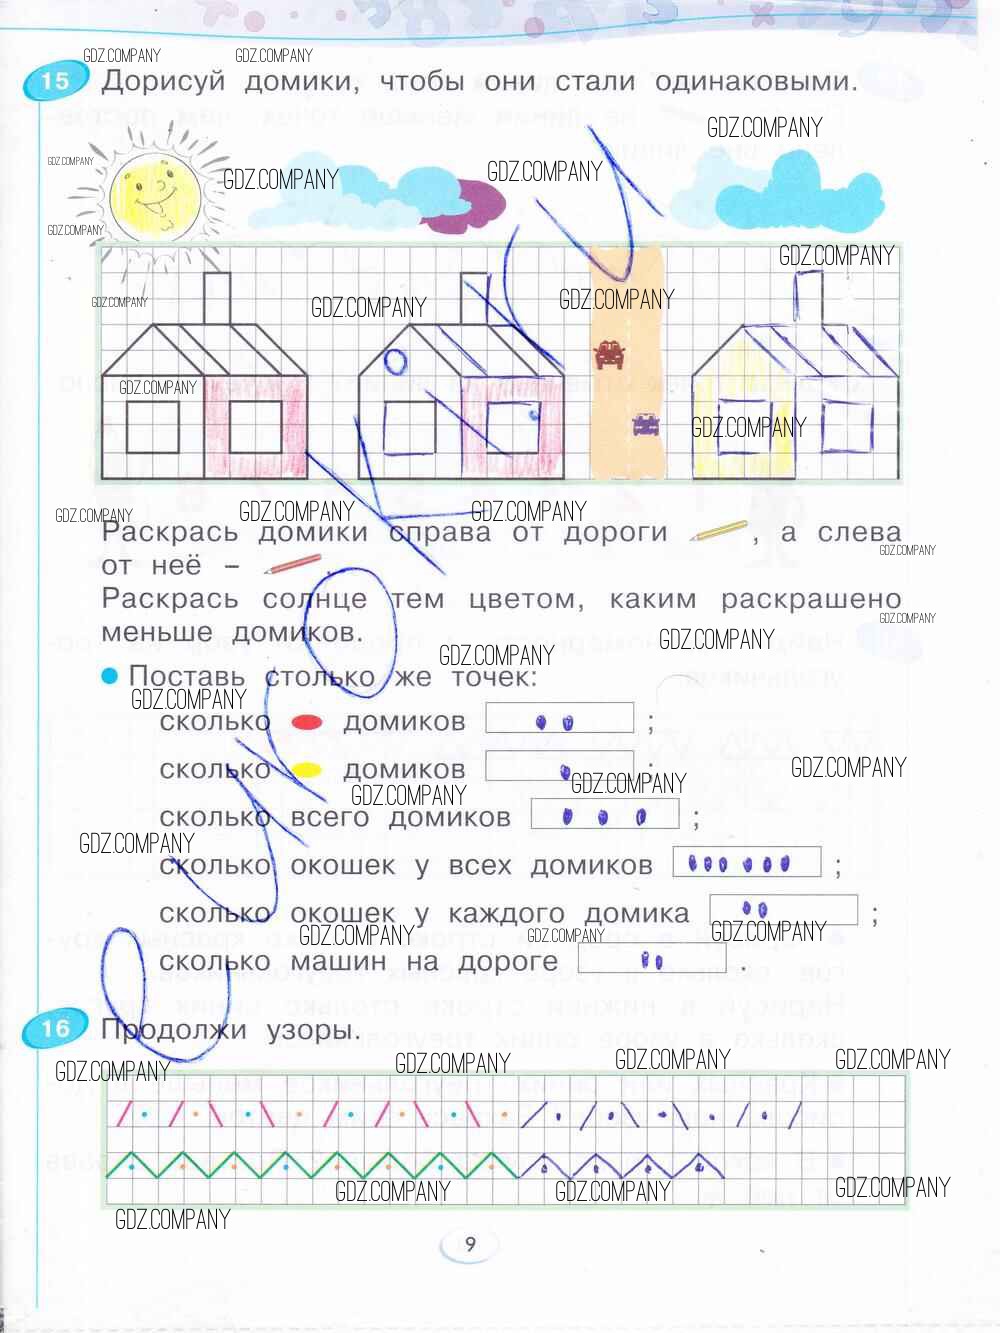 GDZ.COMPANY GDZ.COMPANY
15 Дорисуй домики, чтобы они стали одинаковыми.
GDZ.COMPANY
GDZ.COMPANY GDZ.COMPANY GDZ.COMPANY
GDZ.COMPANY
GDZ.COMPANY
GDZ.COMPANY GDZ.COMPANY GDZ.COMPANY
GDZ.COMPANY
GDZ.COMPANY
GDZ.COMPANY GDZ.COMPANY GDZ.COMPANY
Раскрась домики справа от дороги , а слева
GDZ.COMPANY
от неё – .
Раскрась солнце тем цветом, каким раскрашено
GDZ.COMPANY
меньше домиков.
GDZ.COMPANY GDZ.COMPANY
Поставь столько же точек:
GDZ.COMPANY
сколько домиков ;
сколько домиков ;
GDZ.COMPANY GDZ.COMPANY GDZ.COMPANY
сколько всего домиков ;
GDZ.COMPANY
сколько окошек у всех домиков ;
сколько окошек у каждого домика ;
GDZ.COMPANY GDZ.COMPANY GDZ.COMPANY
сколько машин на дороге .
16 Продолжи узоры.
GDZ.COMPANY GDZ.COMPANY GDZ.COMPANY GDZ.COMPANY
GDZ.COMPANY GDZ.COMPANY GDZ.COMPANY
GDZ.COMPANY
9